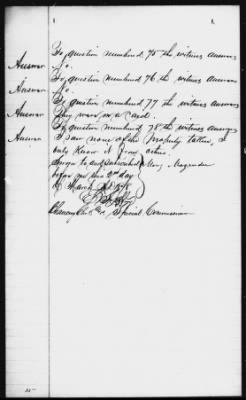 To question numbered 75 the witness answers
Answer No.
To question numbered 76 the witness answers
Answer No.
To question numbered 77 the witness answers
Answer They were on a raid.
To question numbered 78 the witness answers
Answer I saw none of the property taken, I
only know it from
Sworn to and subscribed Mary Magruder
before me this 2nd day
of March
Special Commissioner